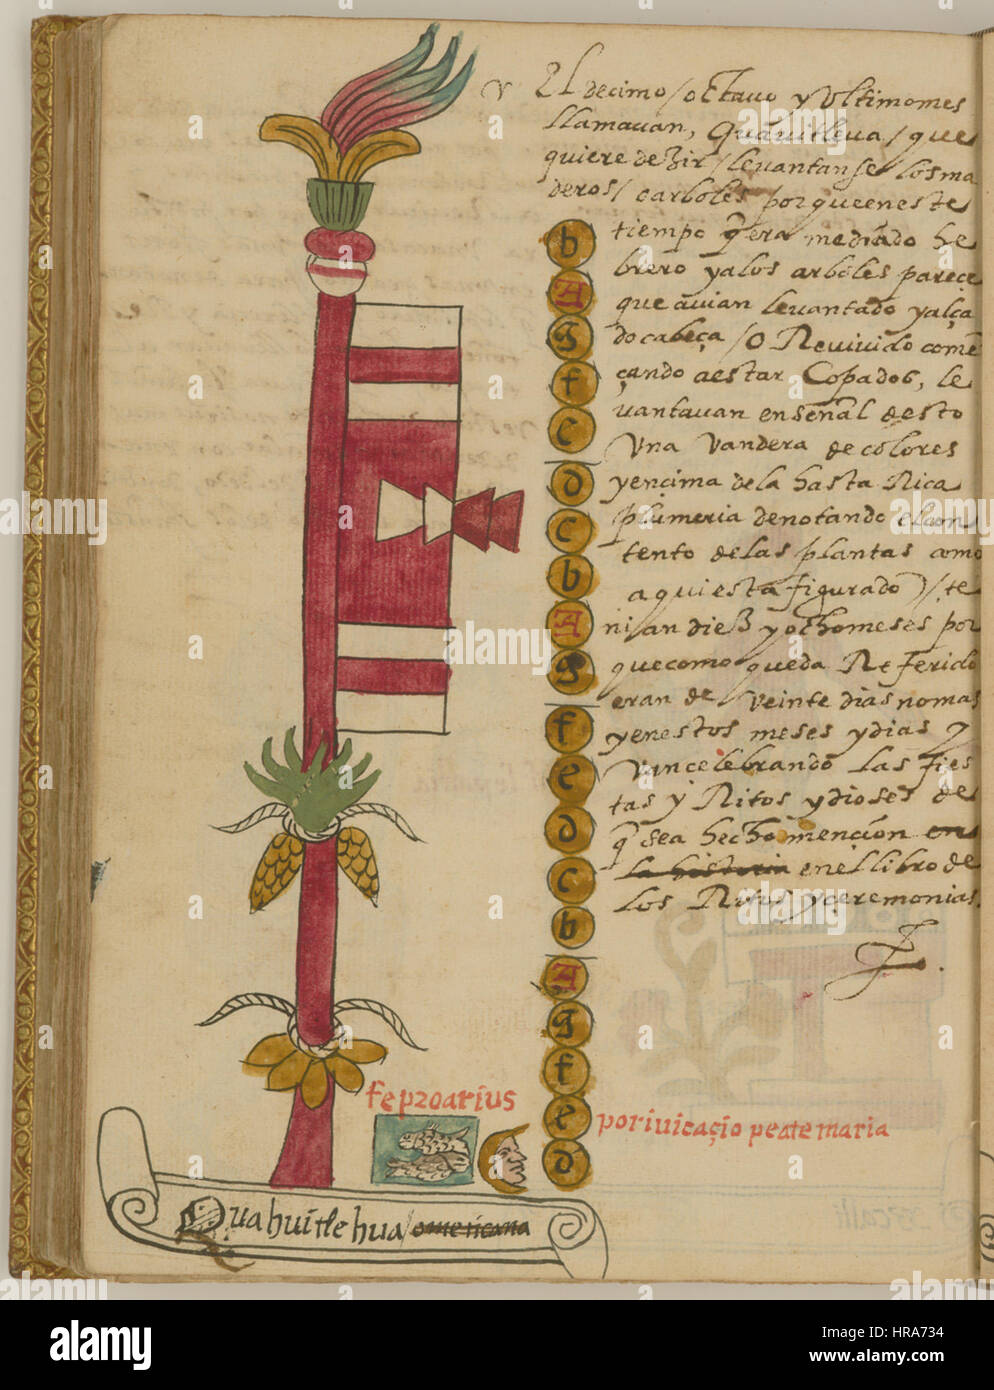 El decimo / octavo y ultimo mes
llamavan, Quavitleva / que
quiere dezir / levantanse los ma
deros / o arboles porque en este
tiempo q̃ era mediado he
brero ya los arboles pareçe
que avian levantado y alça
do cabeça / o Revivido comẽ
çando a estar Copados, le
vantavan en señal desto
una vandera de colores
y encima de la hasta Rica
plumeria denotando el con
tento de las plantas como
aqui esta figurado / te
nian diez y ocho meses por
que como queda Referido
eran de veinte dias no mas
y en estos meses y dias y
van celebrando las fies
tas y Ritos y dioses de
q̃ se a hecho mençion en
la historia en el libro de
los Ritos y çeremonias.
b
A
g
f
e
d
c
b
A
g
f
e
d
c
b
A
g
f
e
d
februarius
porivicaçio peatemaria
Quahuitlehua / o mexicana
alamy
alamy
Image ID: HRA734
www.alamy.com